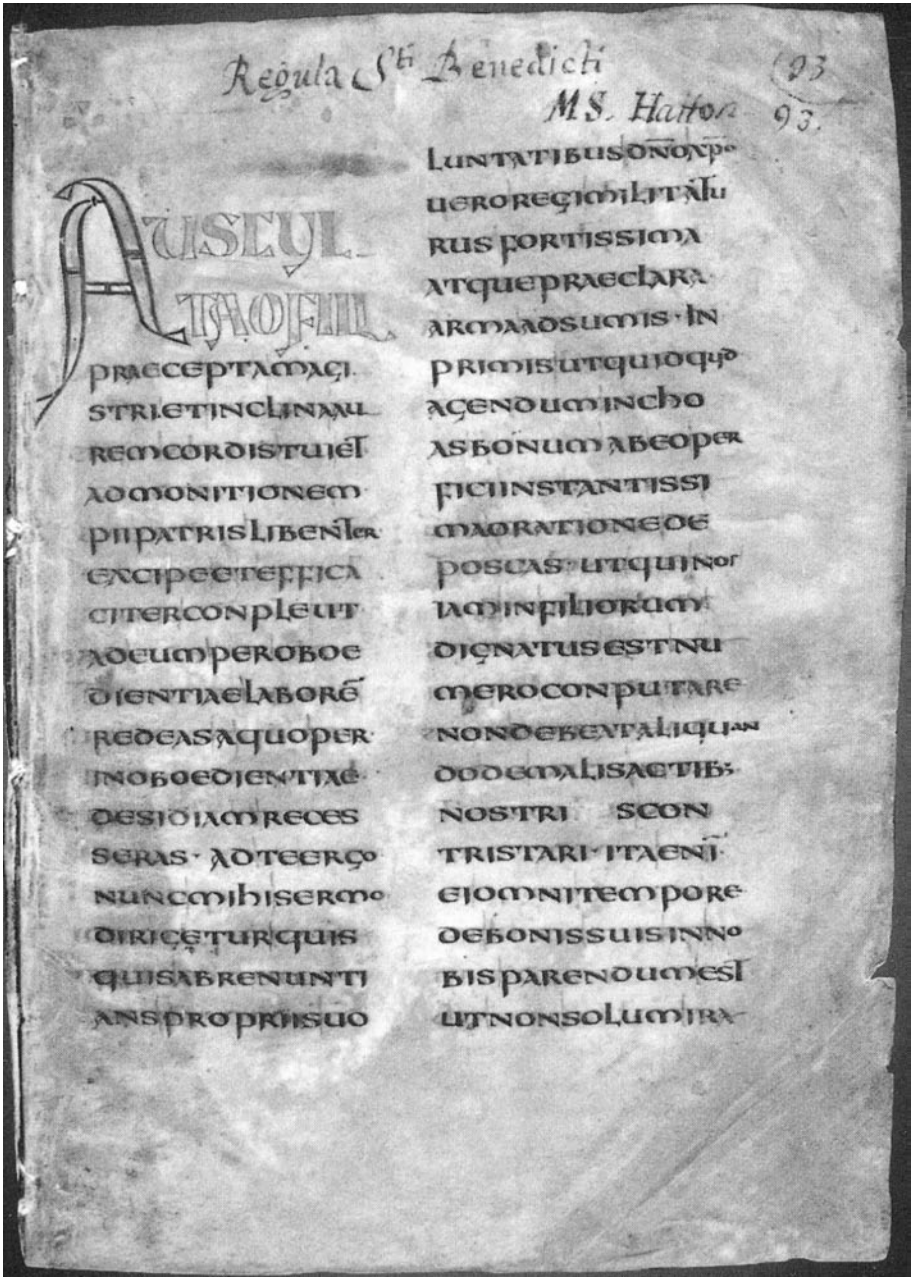 Regula Sti Benedicti
MS. Hatton
93
93.
AUSCUL
TAOFILI
PRAECEPTAMAGI
STRIETINCLINAAU
REMCORDISTUIET
ADMONITIONEM
PIIPATRISLIBENTER
EXCIPEETEFFICA
CITERCONPLEUT
ADEUMPEROBOE
DIENTIAELABORĒ
REDEASAQUOPER
INOBOEDIENTIAE
DESIDIAMRECES
SERAS· ADTEERGO
NUNCMIHISERMO
DIRIGETURQUIS
QUISABRENUNTI
ANSPROPRIISUO
LUNTATIBUSDN̄OXP̄O
UEROREGIMILITATU
RUSFORTISSIMA
ATQUEPRAECLARA
ARMAADSUMIS·IN
PRIMISUTQUIDQUID
AGENDUMINCHO
ASBONUMABEOPER
FICIINSTANTISSI
MAORATIONEDE
POSCAS·UTQUINOS
IAMINFILIORUM
DIGNATUSESTNU
MEROCONPUTARE
NONDEBEATALIQUAN
DODEMALISACTIB;
NOSTRI SCON
TRISTARI·ITAENĪ
EIOMNITEMPORE
DEBONISSUISINNO
BISPARENDUMEST
UTNONSOLUMIRA